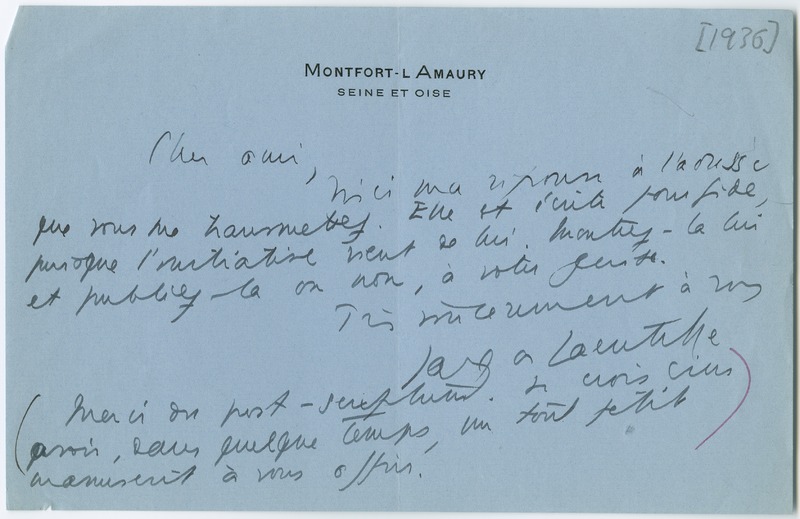 [1936]
MONTFORT-L AMAURY
SEINE ET OISE
Cher ami,
Voici ma réponse à l'adresse
que vous me transmettez. Elle est écrite pour Gide,
puisque l'initiative vient de lui. Montrez-la lui
et publiez-la ou non, à votre guise.
Très sincèrement à vous
Jacques de Lacretelle
(Merci du post-scriptum. Je crois
avoir, dans quelque temps, un tout petit
manuscrit à vous offrir.)